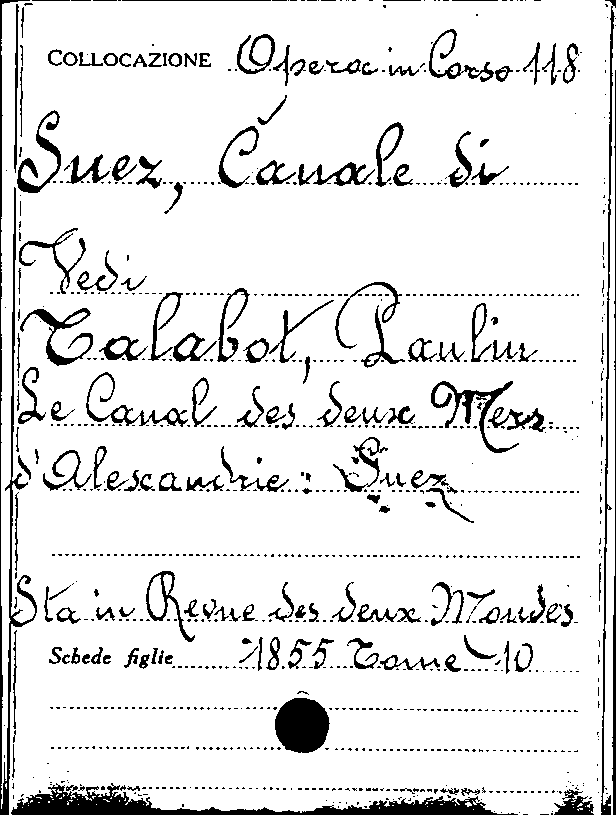 COLLOCAZIONE Opera in Corso 118
Suez, Canale di
Vedi
Talabot, Paulin
Le Canal des deux Mers
d'Alexandrie : Suez
Sta in Revue des deux Mondes
Schede figlie 1855 Tome 10